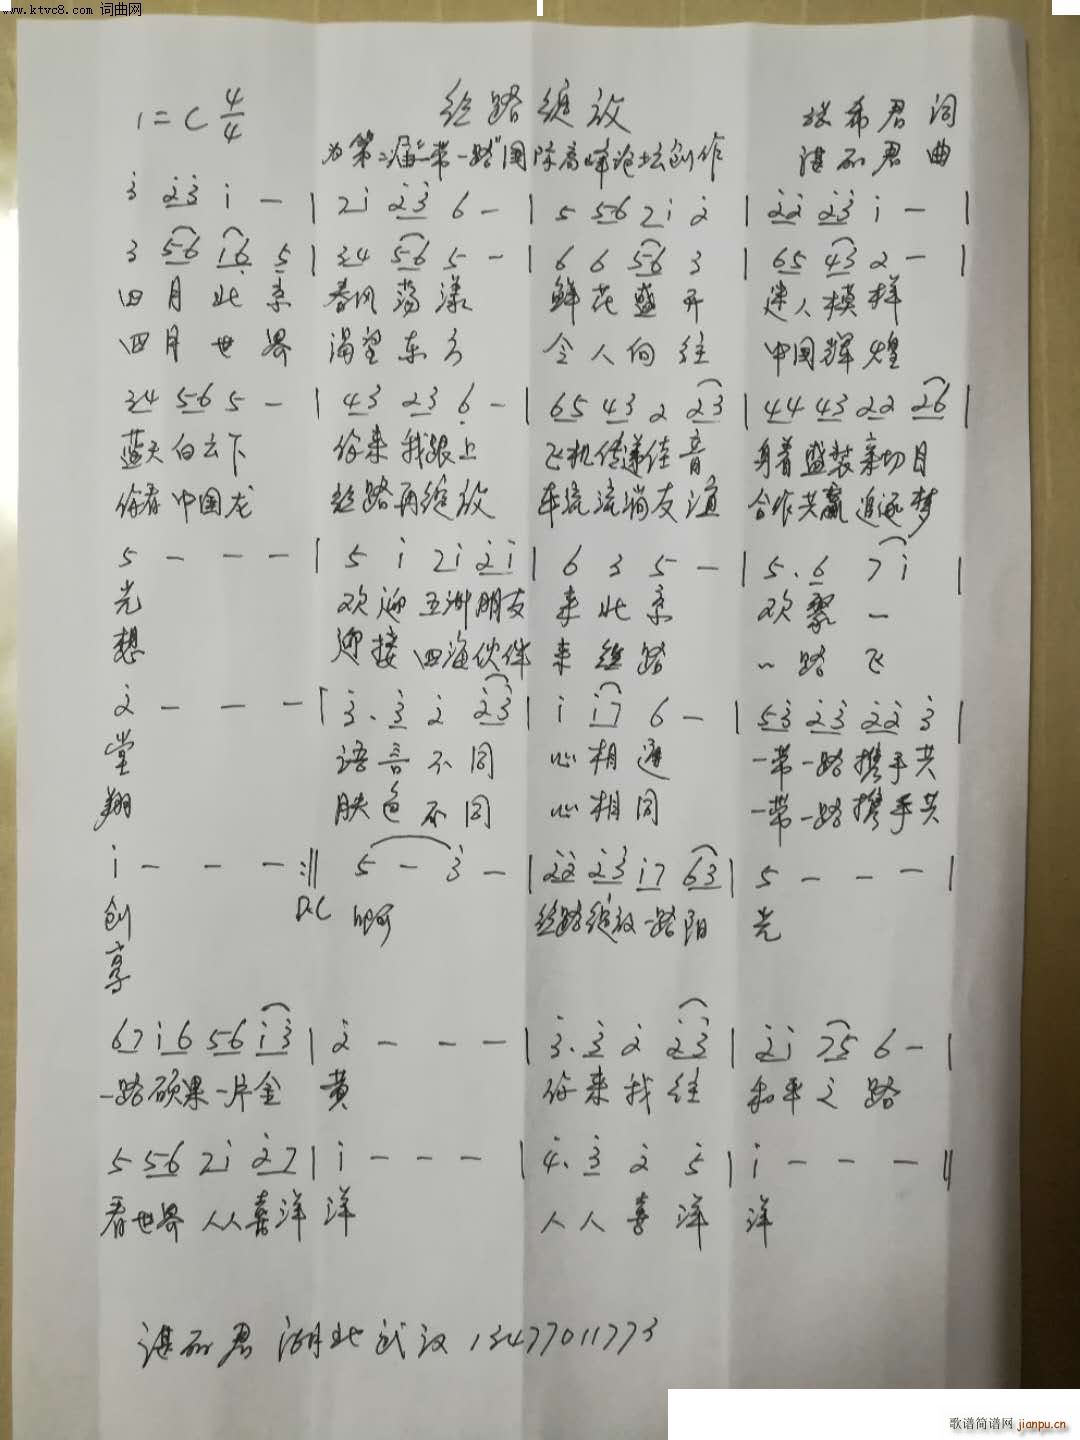 www.ktvc8.com 词曲网
1=C 4/4 丝路绽放 张希君 词
为第二届"一带一路"国际高峰论坛创作 谌丽君 曲
3̇ 2̇3̇ 1̇ - | 71̇ 2̇3̇ 6 - | 5 56 71̇ 2̇ | 2̇2̇ 2̇3̇ 1̇ - |
3 56 1̇6 5 | 34 56 5 - | 6 6 56 3 | 65 43 2 - |
四月北京 春风荡漾 鲜花盛开 迷人模样
四月世界 渴望东方 令人向往 中国辉煌
34 56 5 - | 43 23 6̣ - | 65 43 2 23 | 44 43 22 26̣ |
蓝天白云下 你来我跟上 飞机传递佳音 身着盛装亲切目
你看中国龙 丝路再绽放 车流流淌友谊 合作共赢追逐梦
5 - - - | 5 1̇ 71̇ 2̇1̇ | 6 3 5 - | 5. 6 7 1̇ |
光 欢迎五洲朋友 来北京 欢聚一
想 迎接四海伙伴 来丝路 一路飞
2̇ - - - | 3̇. 3̇ 2̇ 2̇3̇ | 1̇ 1̇7 6 - | 53̇ 2̇3̇ 2̇2̇ 3̇ |
堂 语言不同 心相连 一带一路携手共
翔 肤色不同 心相同 一带一路携手共
1̇ - - - :|| 5 - 3̇ - | 2̇2̇ 2̇3̇ 1̇7 63 | 5 - - - |
创 D.C 啊 丝路绽放一路阳 光
享
67 1̇6 56 1̇3̇ | 2̇ - - - | 3̇. 3̇ 2̇ 2̇3̇ | 2̇1̇ 75 6 - |
一路硕果一片金 黄 你来我往 和平之路
5 56 71̇ 2̇7 | 1̇ - - - | 4̇. 3̇ 2̇ 5̇ | 1̇ - - - ||
看世界人人喜洋 洋 人人喜洋 洋
谌丽君 湖北武汉 13477011773
歌谱简谱网 jianpu.cn